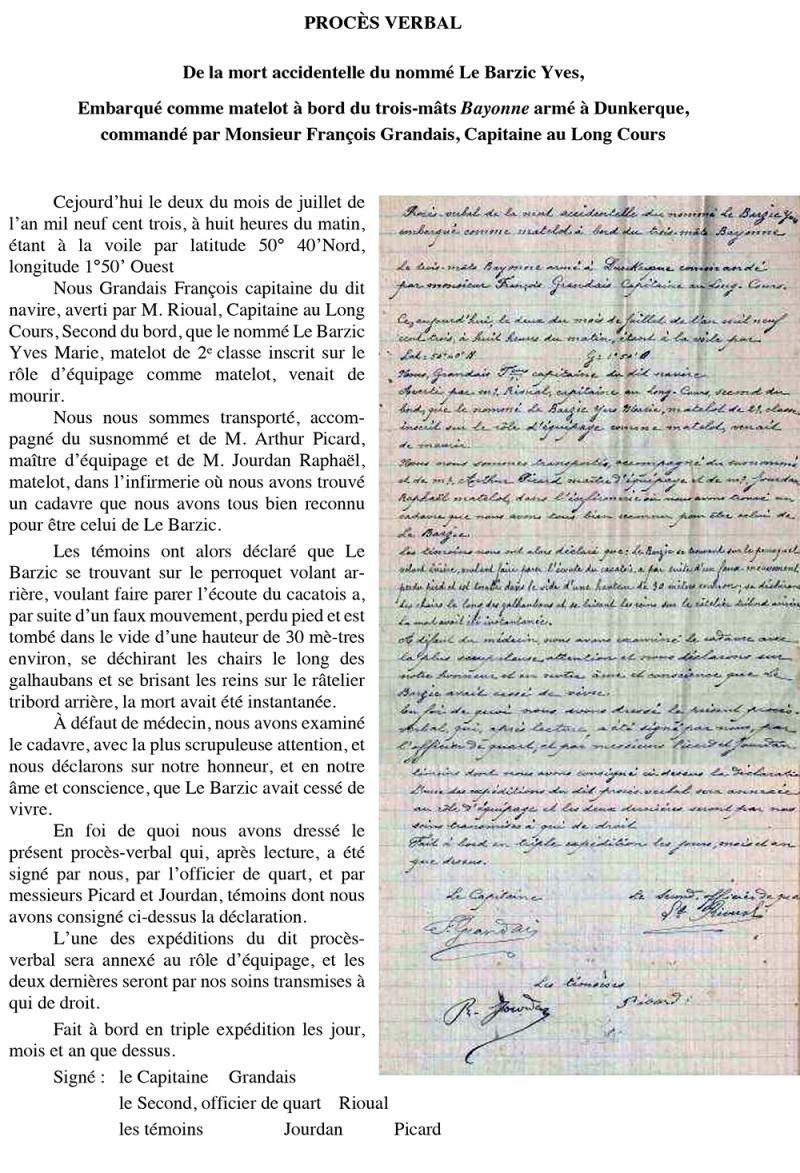 PROCÈS VERBAL
De la mort accidentelle du nommé Le Barzic Yves,
Embarqué comme matelot à bord du trois-mâts Bayonne armé à Dunkerque,
commandé par Monsieur François Grandais, Capitaine au Long Cours
Cejourd’hui le deux du mois de juillet de
l’an mil neuf cent trois, à huit heures du matin,
étant à la voile par latitude 50° 40’Nord,
longitude 1°50’ Ouest
Nous Grandais François capitaine du dit
navire, averti par M. Rioual, Capitaine au Long
Cours, Second du bord, que le nommé Le Barzic
Yves Marie, matelot de 2e classe inscrit sur le
rôle d’équipage comme matelot, venait de
mourir.
Nous nous sommes transporté, accom-
pagné du susnommé et de M. Arthur Picard,
maître d’équipage et de M. Jourdan Raphaël,
matelot, dans l’infirmerie où nous avons trouvé
un cadavre que nous avons tous bien reconnu
pour être celui de Le Barzic.
Les témoins ont alors déclaré que Le
Barzic se trouvant sur le perroquet volant ar-
rière, voulant faire parer l’écoute du cacatois a,
par suite d’un faux mouvement, perdu pied et est
tombé dans le vide d’une hauteur de 30 mè-tres
environ, se déchirant les chairs le long des
galhaubans et se brisant les reins sur le râtelier
tribord arrière, la mort avait été instantanée.
À défaut de médecin, nous avons examiné
le cadavre, avec la plus scrupuleuse attention, et
nous déclarons sur notre honneur, et en notre
âme et conscience, que Le Barzic avait cessé de
vivre.
En foi de quoi nous avons dressé le
présent procès-verbal qui, après lecture, a été
signé par nous, par l’officier de quart, et par
messieurs Picard et Jourdan, témoins dont nous
avons consigné ci-dessus la déclaration.
L’une des expéditions du dit procès-
verbal sera annexé au rôle d’équipage, et les
deux dernières seront par nos soins transmises à
qui de droit.
Fait à bord en triple expédition les jour,
mois et an que dessus.
Signé : le Capitaine Grandais
le Second, officier de quart Rioual
les témoins Jourdan Picard
Procès-verbal de la mort accidentelle du nommé Le Barzic Yves
embarqué comme matelot à bord du trois-mâts Bayonne
Le trois-mâts Bayonne armé à Dunkerque commandé
par monsieur François Grandais Capitaine au Long-Cours.
Cejourd'hui, le deux du mois de juillet de l'an mil neuf
cent trois, à huit heures du matin, étant à la voile par
Lat = 50°40' N G = 1°50' O
Nous, Grandais capitaine du dit navire
Averti par mr. Rioual, capitaine au long-Cours, second du
bord, que le nommé Le Barzic Yves Marie, matelot de 2e classe
inscrit sur le rôle d'équipage comme matelot, venait
de mourir.
Nous nous sommes transportés, accompagné du susnommé
et de mr. Arthur Picard maître d'équipage et de mr. Jourdan
Raphaël matelot, dans l'infirmerie où nous avons trouvé un
cadavre que nous avons tous bien reconnu pour être celui de
Le Barzic.
Les témoins nous ont alors déclaré que : Le Barzic se trouvant sur le perroquet
volant arrière, voulant faire parer l'écoute du cacatois, a par suite d'un faux mouvement
perdu pied et est tombé dans le vide d'une hauteur de 30 mètres environ, se déchirant
les chairs le long des galhaubans et se brisant les reins sur le râtelier tribord arrière
La mort avait été instantanée.
A défaut de médecin, nous avons examiné le cadavre avec
la plus scrupuleuse attention et nous déclarons sur
notre honneur et en notre âme et conscience que Le
Barzic avait cessé de vivre.
En foi de quoi nous avons dressé le présent procès-
verbal, qui, après lecture, a été signé par nous, par
l'officier de quart, et par messieurs Picard et Jourdan
témoins dont nous avons consigné ci-dessus la déclaration
L'une des expéditions du dit procès-verbal sera annexée
au rôle d'équipage et les deux dernières seront par nos
soins transmises à qui de droit
Fait à bord en triple expédition les jours, mois et an
que dessus.
Le Capitaine Le Second, officier de
F. Grandais Rioual
Les témoins
R. Jourdan Picard